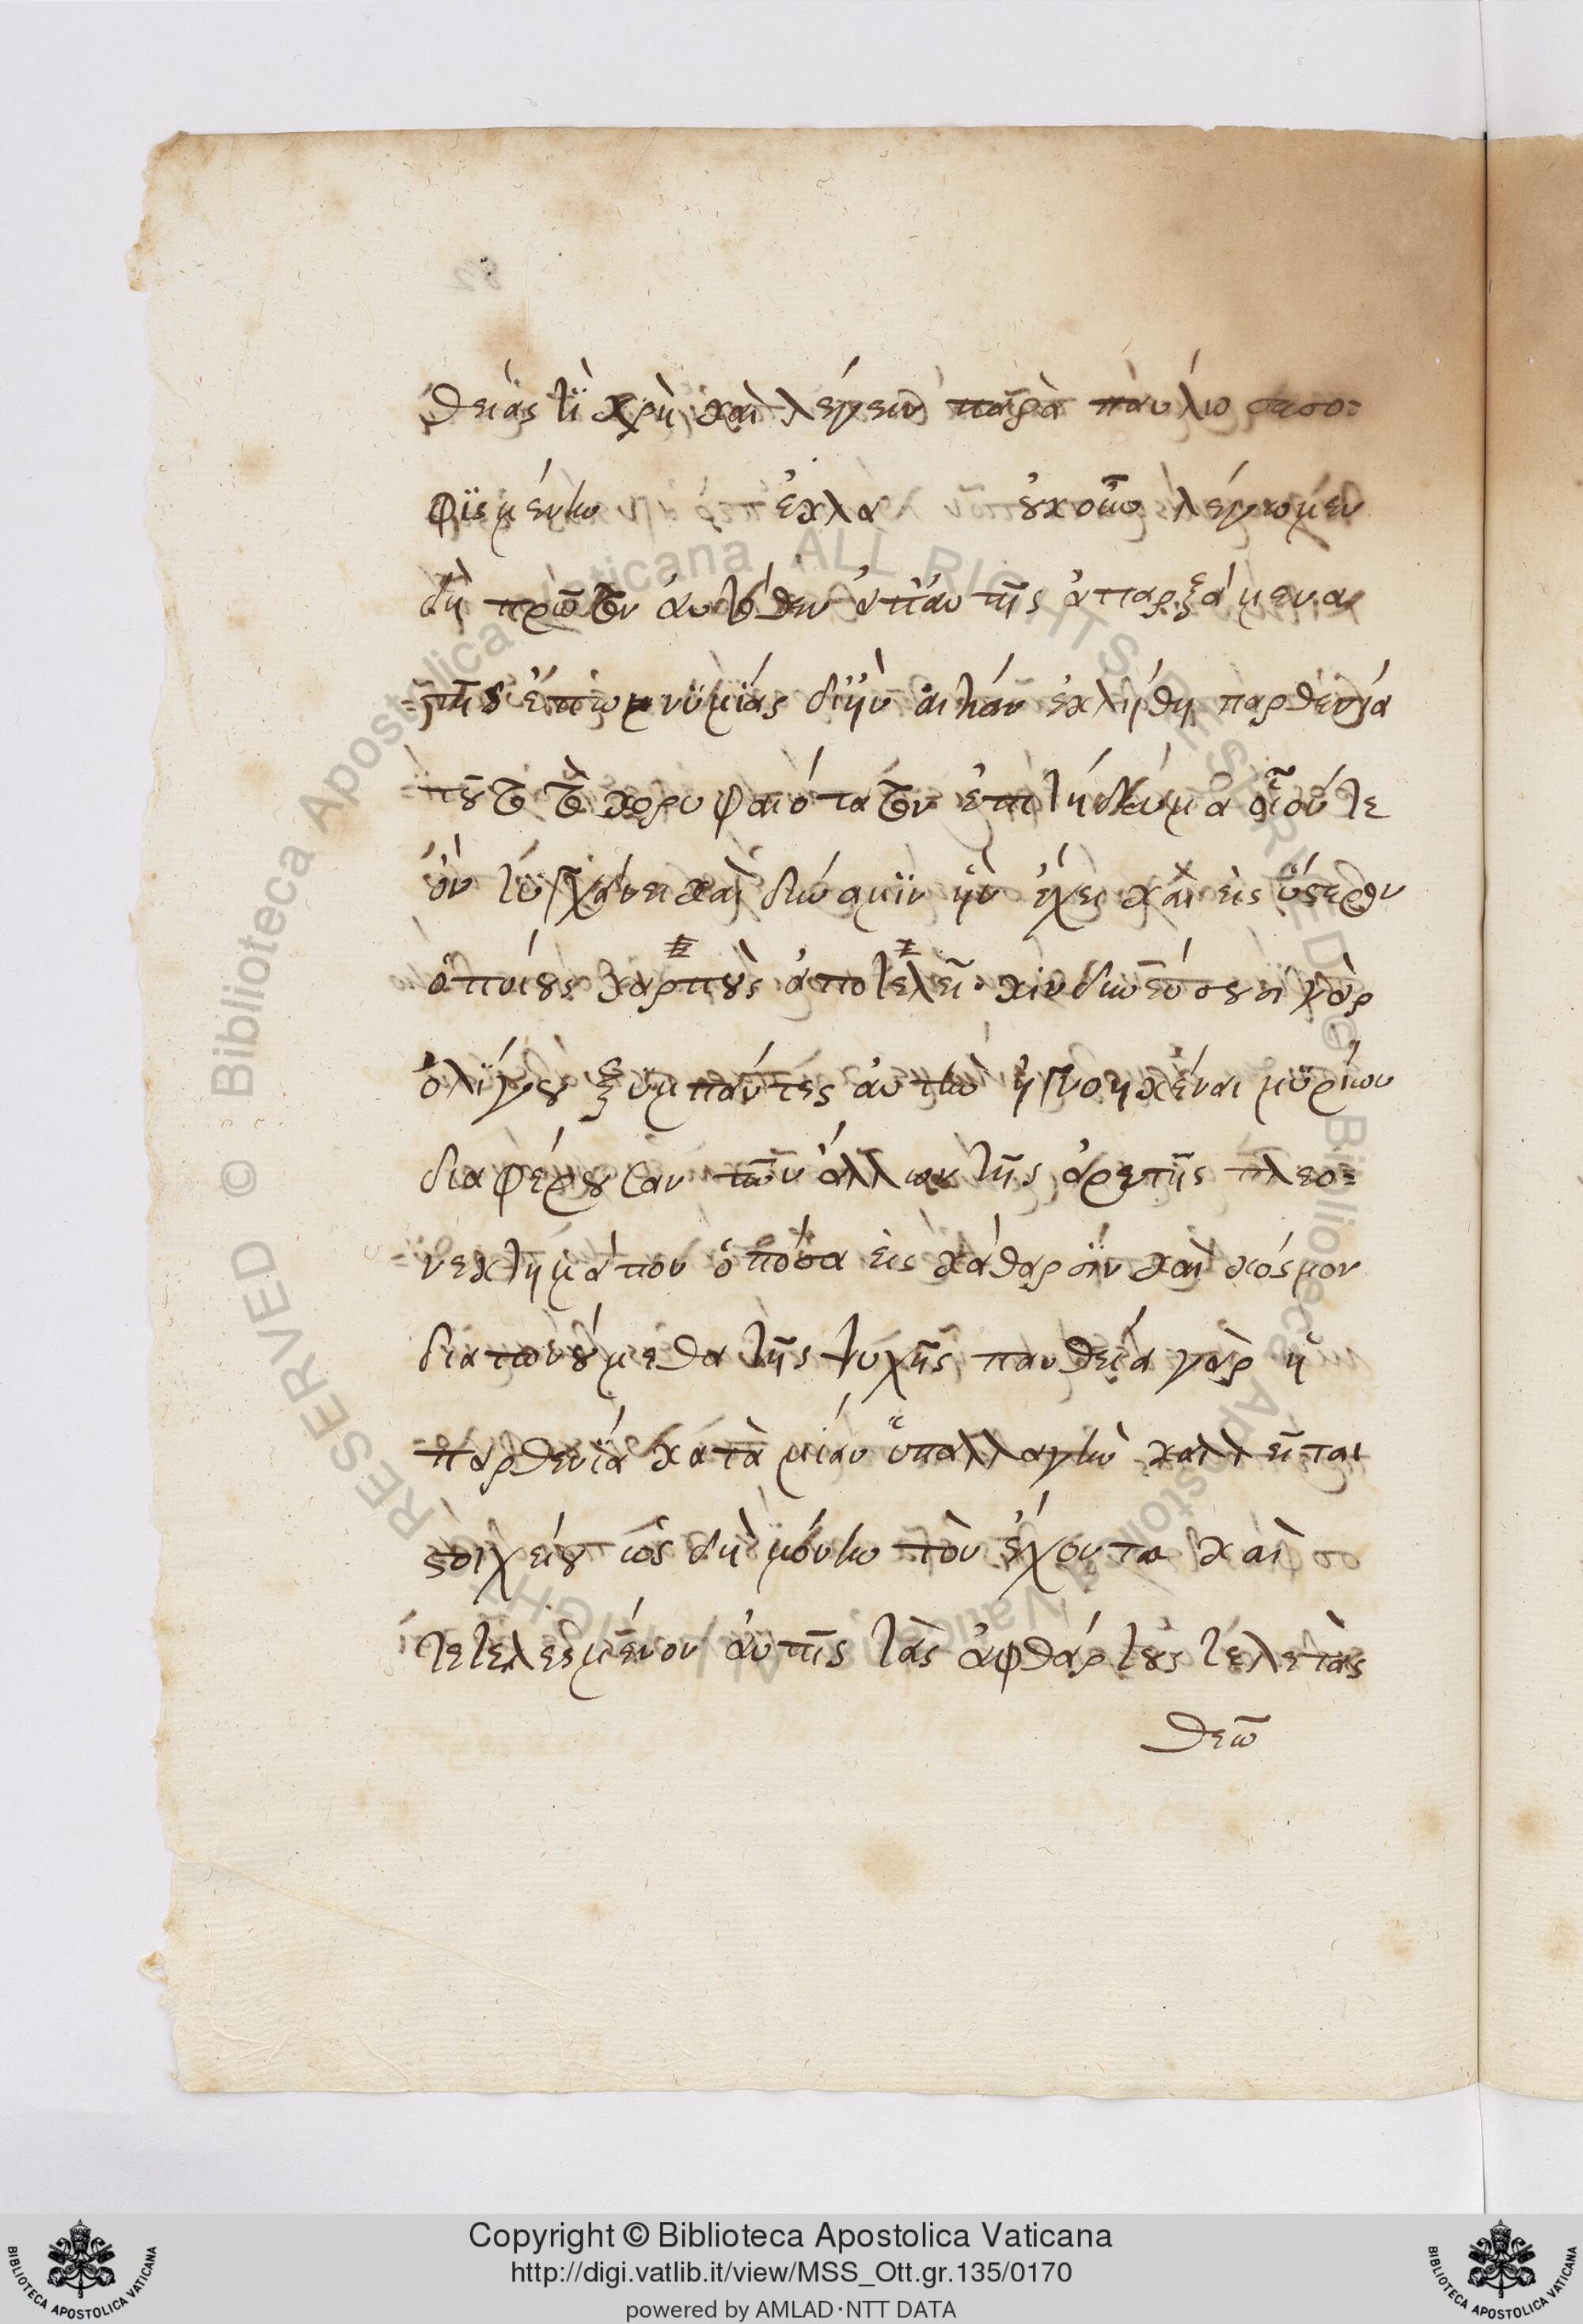 θείας τί χρὴ καὶ λέγειν παρὰ παύλω σεσο=
φϊσμένην ἐκλα οὐκοῦν λέγωμεν
δὴ πρῶτον αὐτόθεν ἀπ' αὐτῆς ἀπαρξάμενα
τῆς ἐπωνυμίας δι' ἣν αἰτίαν ἐκλήθη παρθενία
τοῦτο τὸ κορυφαιότατον ἐπιτήδευμα οἷόν τε
ὂν τυγχάνει καὶ δύναμϊν ἣν ἔχει καὶ εἰς ὕστερον
ὁποίους καρποὺς ἀποτελεῖ· κινδυνεύουσι γὰρ
ὀλίγου ξύμπαντες αὐτὴν ἠγνοηκέναι μυρίων
διαφέρουσαν τῶν ἄλλων τῆς ἀρετῆς πλεο=
νεκτημάτων ὁπόσα εἰς κάθαρσϊν καὶ κόσμον
διαπονούμεθα τῆς ψυχῆς παρθεία γὰρ ἡ
παρθενία κατὰ μίαν ὑπαλλαγὴν καλλεῖται
στοιχείου ὡς δὴ μόνη τὸν ἔχοντα καὶ
τετελεσμένον αὐτῆς τὰς ἀφθάρτους τελετὰς
θεῶ
Copyright © Biblioteca Apostolica Vaticana
http://digi.vatlib.it/view/MSS_Ott.gr.135/0170
powered by AMLAD·NTT DATA